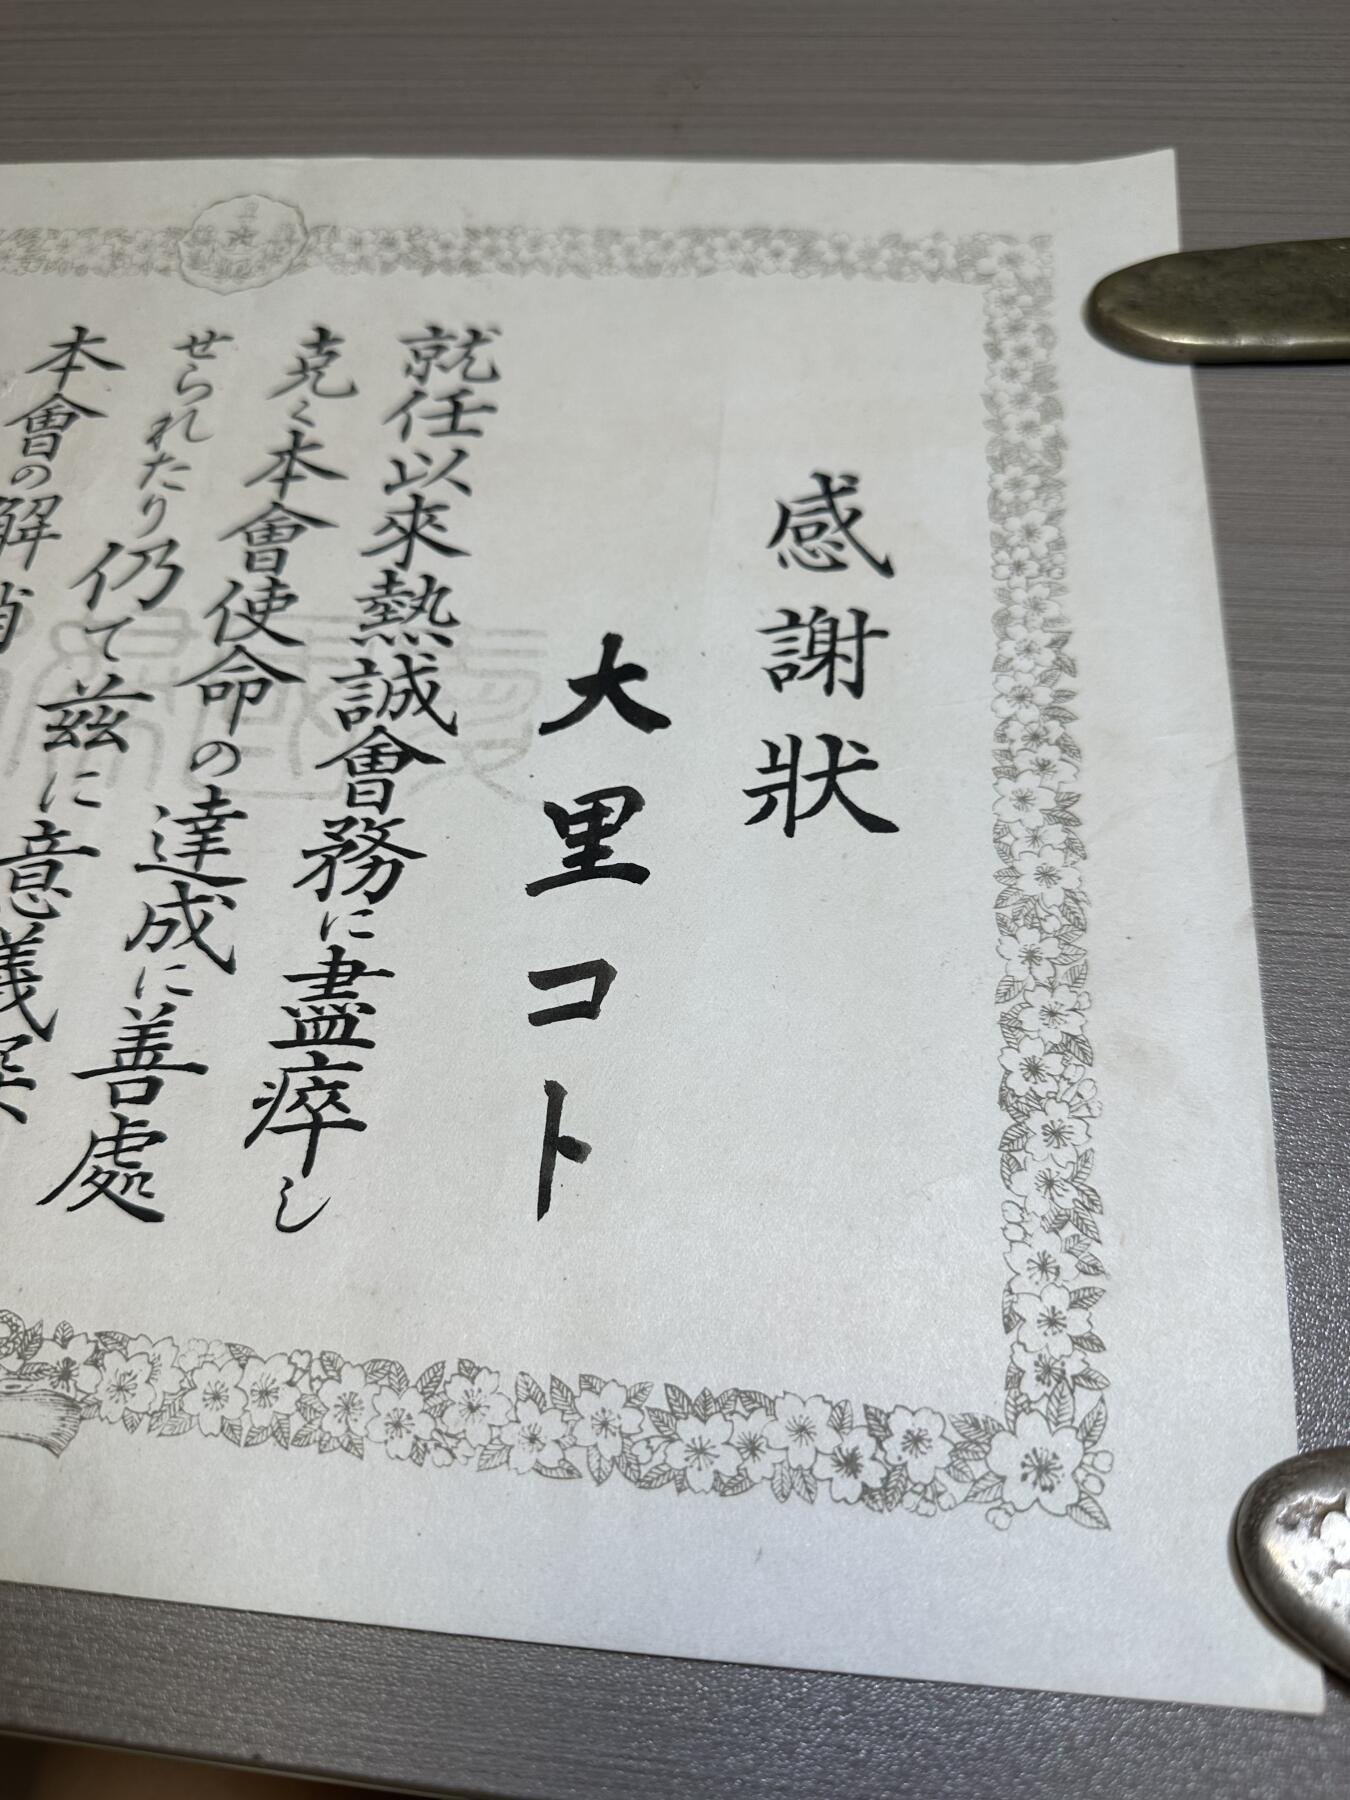 感謝狀
大里コト
就任以來熱誠會務に盡瘁し
克く本會使命の達成に善處
せられたり仍て茲に意義深
本會の解消